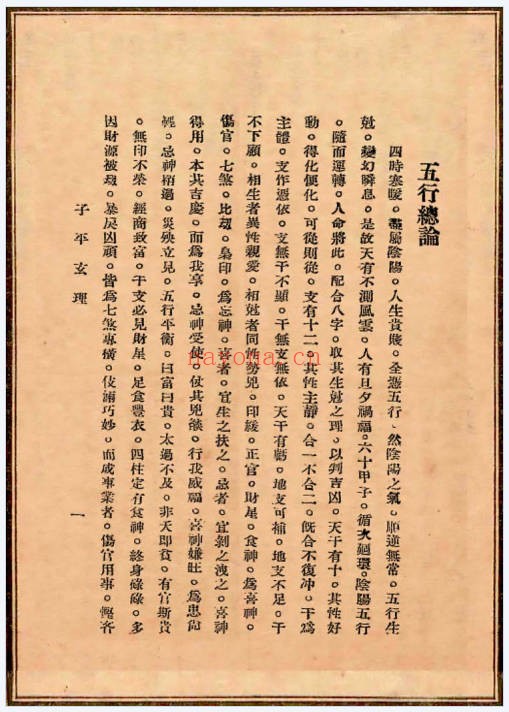 五行總論
四時寒暖。盡屬陰陽。人生貴賤。全憑五行。然陰陽之氣。順逆無常。五行生
尅。變幻瞬息。是故天有不測風雲。人有旦夕禍福。六十甲子。循次廻環。陰陽五行
。隨而運轉。人命將此。配合八字。取其生尅之理。以判吉凶。天干有十。其性好
動。得化便化。可從則從。支有十二。其性主靜。合一不合二。旣合不復冲。干為
主體。支作憑依。支無干不顯。干無支無依。天干有虧。地支可補。地支不足。干
不下顧。相生者異性親愛。相尅者同性勢兇。印綬。正官。財星。食神。為喜神。
傷官。七煞。比刼。梟印。為忌神。喜者。宜生之扶之。忌者。宜剝之洩之。喜神
得用。本其吉慶。而為我享。忌神受使。仗其兇燄。行我威福。喜神嫌旺。為患尙
輕。忌神稍過。災殃立見。五行平衡。曰富曰貴。太過不及。非夭即貧。有官斯貴
。無印不榮。經商致富。干支必見財星。足食豐衣。四柱定有食神。終身碌碌。多
因財源被刼。暴戾凶頑。皆為七煞專橫。伎藝巧妙。而成事業者。傷官用事。慳吝
子平玄理
一
naroha.cn